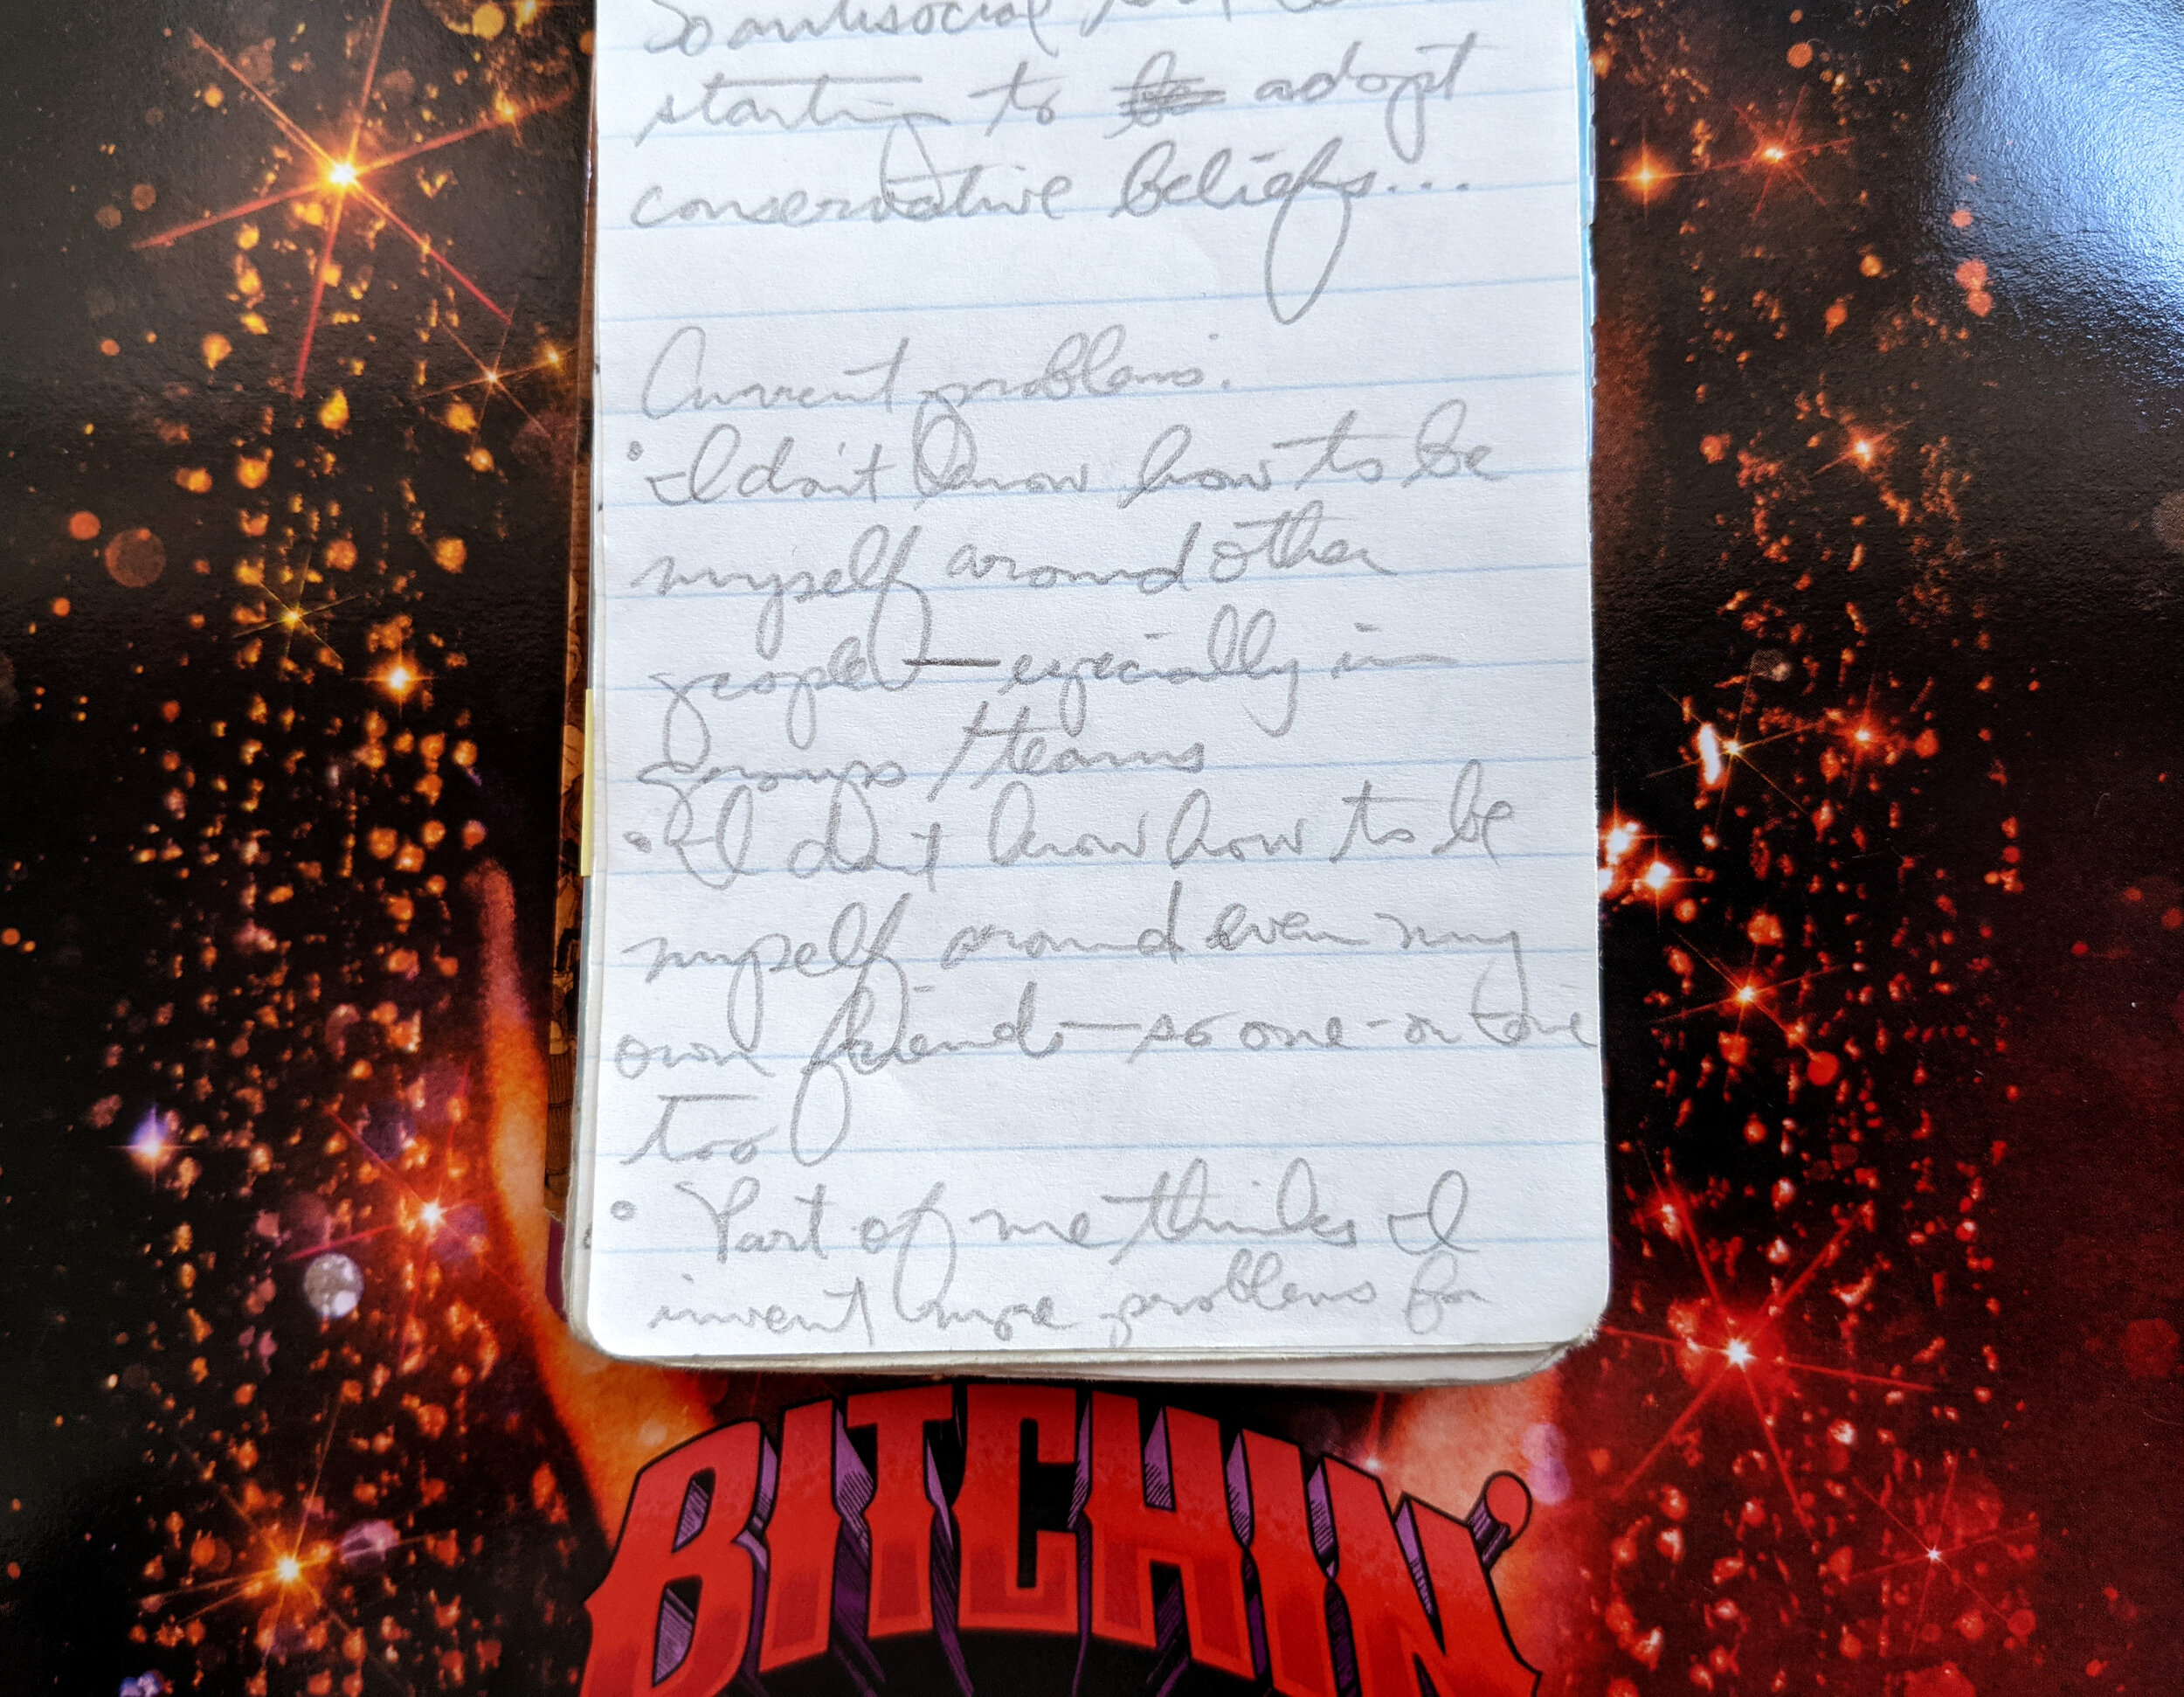 So antisocial
starting to adopt
conservative beliefs...
Current problems:
• I don't know how to be
myself around other
people — especially in
groups/teams
• I don't know how to be
myself around even my
own friends — so one-on-one
too
• Part of me thinks I
invent more problems for
BITCHIN'